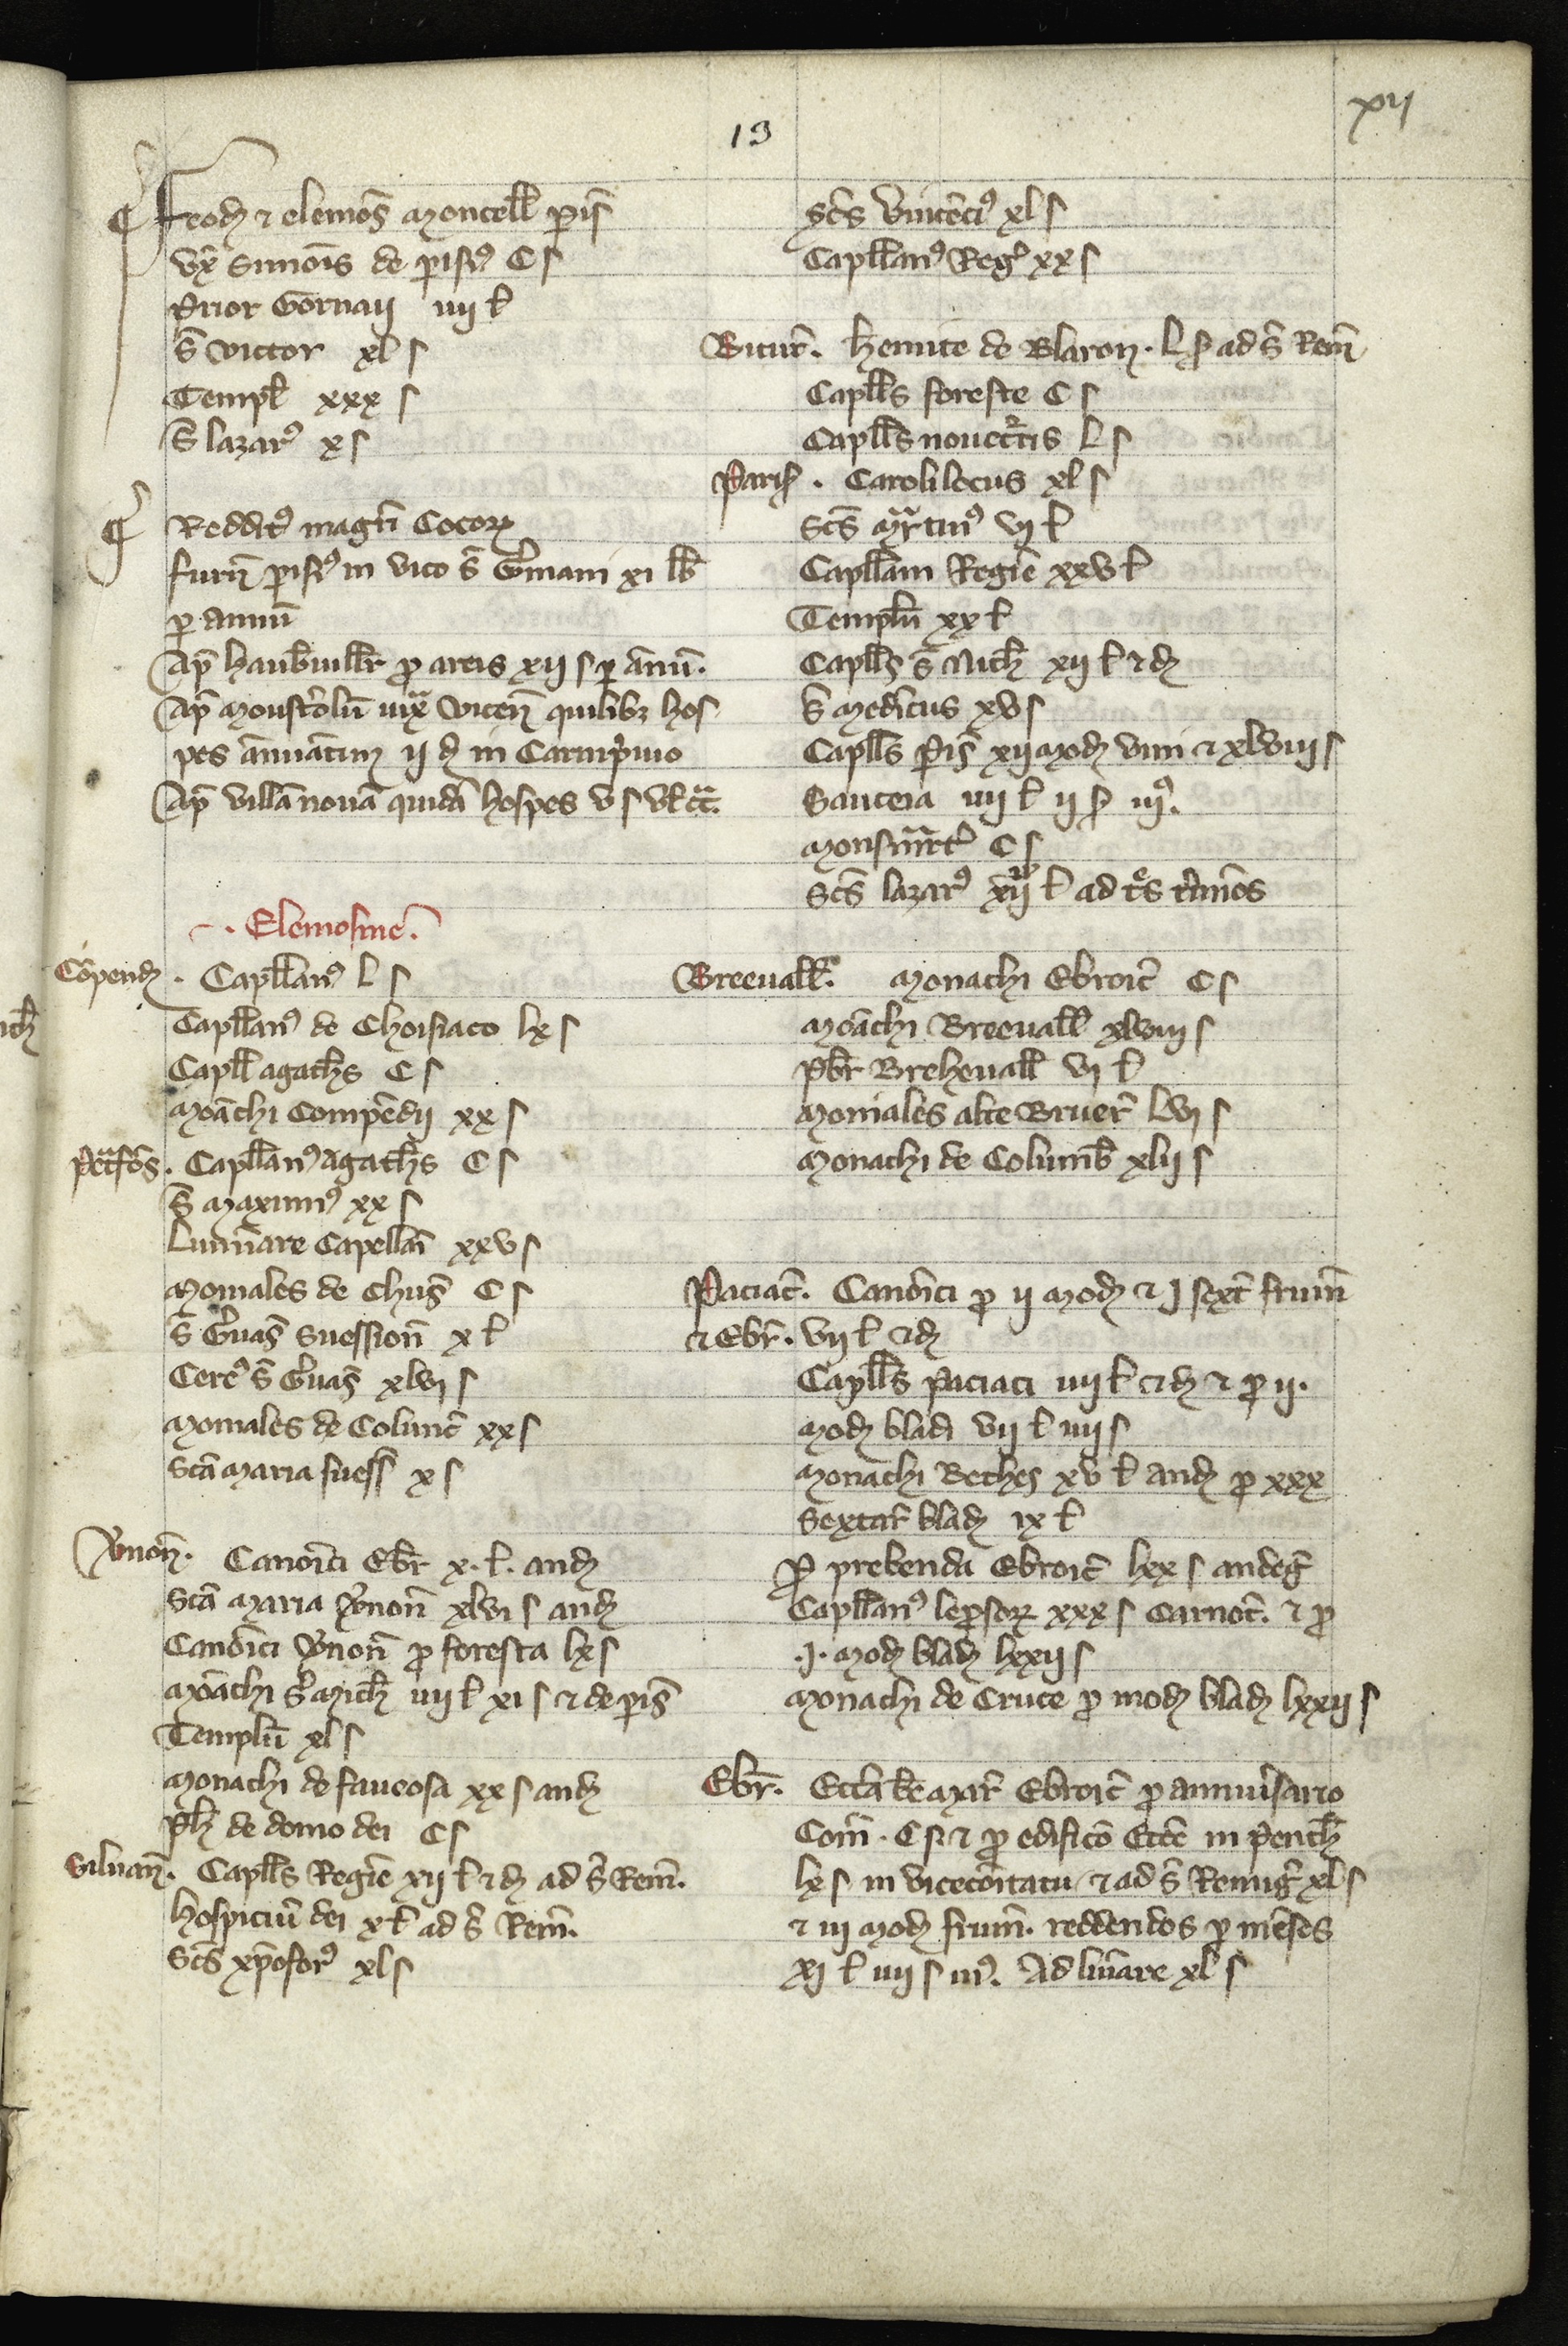 xij
13
Feod & elemos̄ Moncell̄ pīs
Vx̄ Simōis de pisis C s
Prior Gornaii iiij l̄
S̄ victor xl s
Templ̄ xxx s
S̄ lazarꝰ x s
Redditꝰ magr̄i Cocoꝝ
furn̄ pisiꝰ in vico S̄ Germani xi lb̄
p annū
Ap̄ haub̄uill̄r p areis xij s p annū.
Ap̄ Monsterolū iuxª vicen̄ quilibꝫ hos
pes annuātim ij d in Carnip̄uio
Ap̄ villā nouā quidā hospes v s
Elemosine.
Cōpend. Capll̄anꝰ l s
Capll̄anꝰ de Choisiaco lx s
Capll̄ agath̄s C s
Moāchi Compēdij xx s
Petᵃfōs. Capll̄anꝰ Agath̄s C s
S̄ Maximꝰ xx s
Luminare Capellān xxv s
Moniales de Chus̄ C s
S̄ Geruas̄ Suession̄ x l̄
Cerēꝰ S̄ Geruas̄ xlvj s
Moniales de Colunc̄ xx s
Sc̄a Maria suess̄ x s
Vernon̄. Canoīci Ebr̄ x. l. and
Sc̄a Maria Vernon̄ xlvi s and
Canoīci Vernon̄ p foresta lx s
Moāchi Sc̄i Mich̄ iiij l̄ xi s & de pīs
Templū xl s
Monachi de faucosa xx s and
Pb̄r de domo dei C s
Viluan̄. Capll̄s Regīe xij l̄ & d ad S̄ Rem̄.
Hospiciū dei x l̄ ad S̄ Rem̄.
Sc̄s xp̄oforꝰ xl s
Sc̄s Vincēciꝰ xl s
Capll̄anꝰ Regꝭ xx s
Bitur̄. Hemite de Blaron. L s ad S̄ Rem̄
Capll̄s foreste C s
Capll̄s nouectᵃtis L s
Paris. Carolilocus xl s
Scs̄ Mᵃrtinꝰ vj l̄
Capll̄ani Regīe xxv l̄
Templū xx l̄
Capll̄s S̄ Nich̄ xij l̄ & d
S̄ Medīcus xv s
Capll̄s pīs xij Mod vini & xlviij s
Sauceia iiij l̄ ij s iijꝰ.
Monsmᵃrtꝭ C s
Scs̄ lazarꝰ xij l̄ ad tēs t̄minos
Breeuall̄. Monachi Ebroic̄ C s
Moāchi Breeuall̄ xlviij s
Pb̄r Breheuall̄ vj l̄
Moniales alte Bruer̄ lvj s
Monachi de Columb̄ xlij s
Paciac̄. Canoīci p ij Mod & j sext̄ frum̄
& Ebr̄. vij l̄ & d
Capll̄s paciaci iiij l̄ & d & p ij.
Mod bladi vij l̄ iiij s
Monachi Bethes xv l̄ and p xxx
Sextar̄ blad ix l̄
P prebenda Ebroic̄ lxx s andeḡ
Capll̄anꝰ lep̄soꝝ xxx s Carnot̄. & p
.j. Mod blad lxxij s
Monachi de Cruce p mod blad lxxij s
Ebr̄. Ecc̄a bē Mar̄ Ebroic̄ p anniūsario
Com̄. C s & p edificō Ecc̄e in Pentch̄
lx s in vicecōitatu & ad S̄ Remiḡ xl s
& iij Mod frum̄. reddendos p mēses
xj l̄ iiij s iijꝰ. Ad lūiare xl s